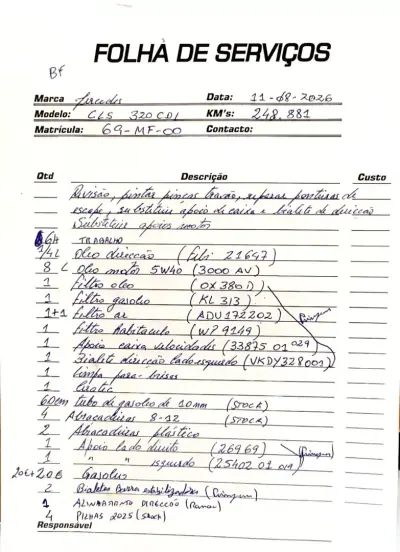 FOLHA DE SERVIÇOS
BF
Marca Mercedes Data: 11-08-2026
Modelo: CLS 320 CDI KM's: 248.881
Matrícula: 69-MF-00 Contacto:
Qtd Descrição Custo
Revisão, pintar pinças travão, reparar ponteiras de
escape, substituir apoio de caixa e bialete de direcção
Substituir apoios motor
6H TRABALHO
1/4L Oleo direcção (Febi 21647)
8 L Oleo motor 5W40 (3000 AV)
1 Filtro oleo (OX380D)
1 Filtro gasoleo (KL 313)
1+1 Filtro ar (ADU172202)
1 Filtro habitaculo (WP9149)
1 Apoio caixa velocidades (33875 01 029)
1 Bialete direcção lado esquerdo (VKDY328001)
1 Limpa para-brisas
1
60cm tubo de gasoleo de 10mm (STOCK)
4 Abracadeiras 8-12 (STOCK)
2 Abracadeiras plástico
1 Apoio lado direito (26969)
1 " " esquerdo (25402 01 019)
20€+20€ Gasoleo
2 Bialetes Barra estabilizadora
1 ALINHAMENTO DIRECÇÃO (Ramos)
4 PILHAS 2025 (Stock)
Responsável